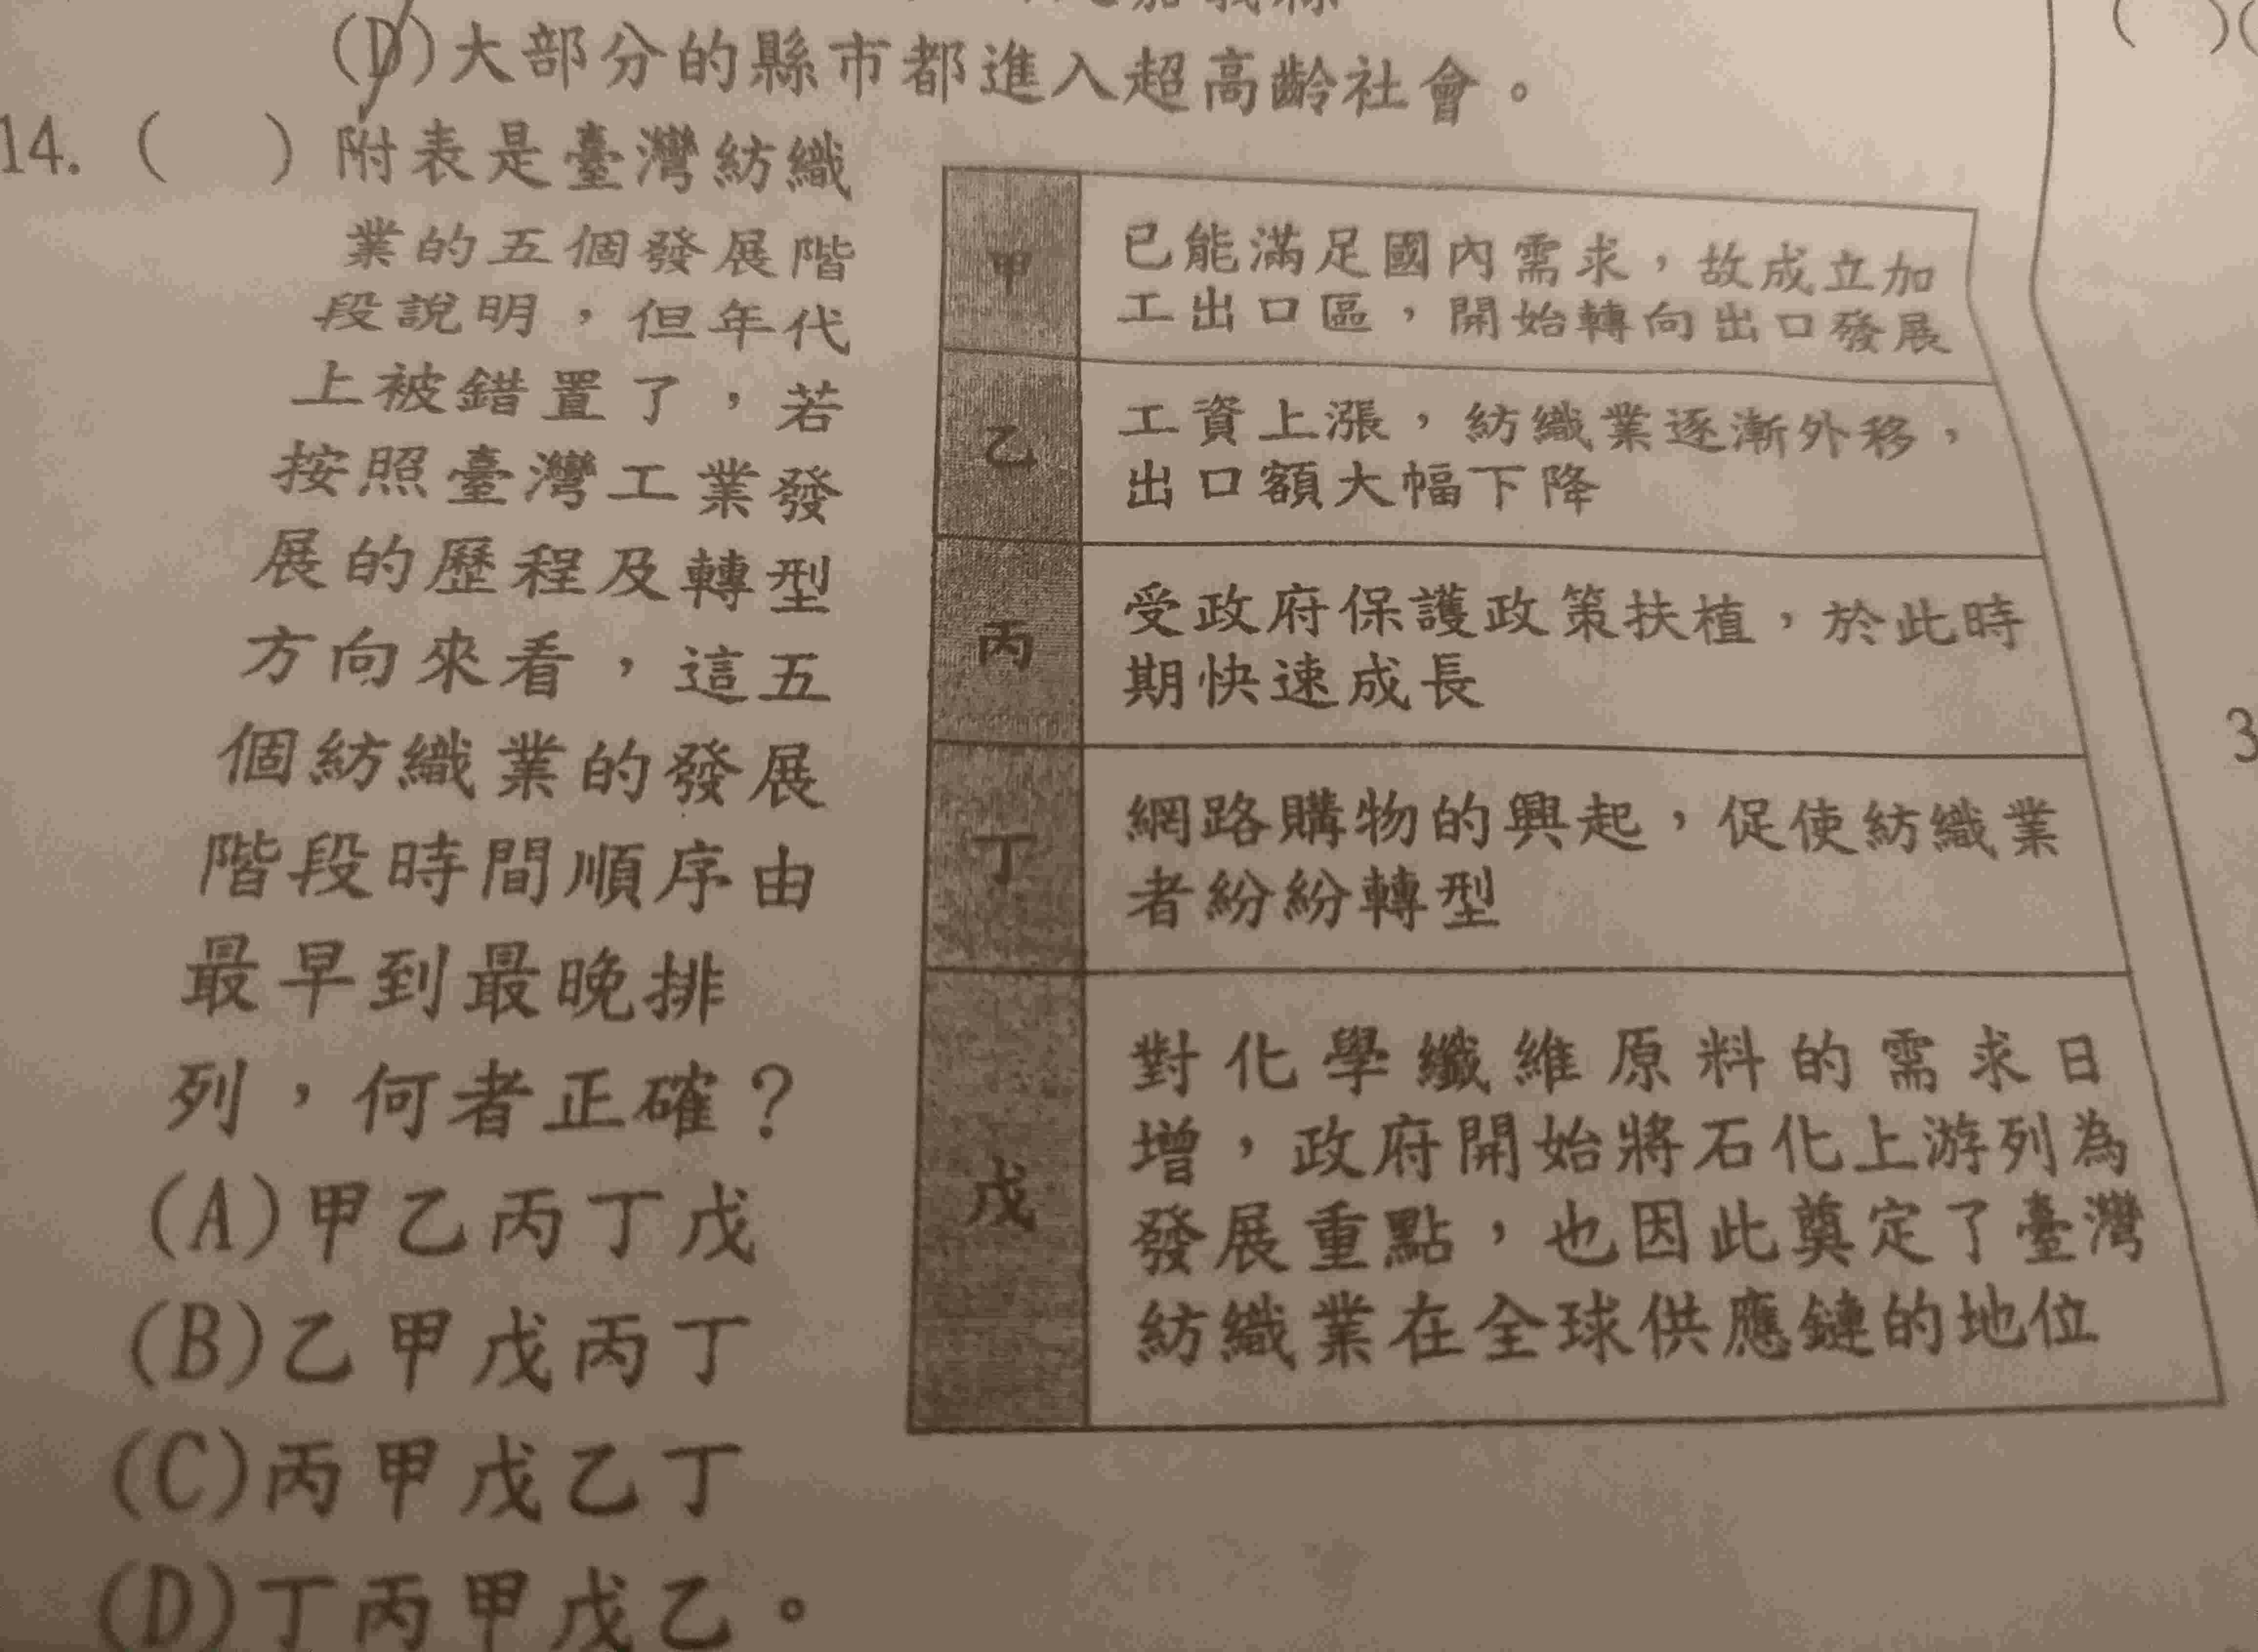 (D)大部分的縣市都進入超高齡社會。
14. (　) 附表是臺灣紡織
業的五個發展階
段說明，但年代
上被錯置了，若
按照臺灣工業發
展的歷程及轉型
方向來看，這五
個紡織業的發展
階段時間順序由
最早到最晚排
列，何者正確？
(A)甲乙丙丁戊
(B)乙甲戊丙丁
(C)丙甲戊乙丁
(D)丁丙甲戊乙。
甲
已能滿足國內需求，故成立加
工出口區，開始轉向出口發展
乙
工資上漲，紡織業逐漸外移，
出口額大幅下降
丙
受政府保護政策扶植，於此時
期快速成長
丁
網路購物的興起，促使紡織業
者紛紛轉型
戊
對化學纖維原料的需求日
增，政府開始將石化上游列為
發展重點，也因此奠定了臺灣
紡織業在全球供應鏈的地位
(　)(
3